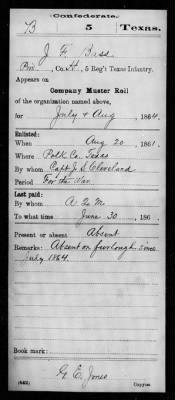 Confederate.
B 5 Texas.
J. F. Bass
Pvt, Co. H, 5 Reg't Texas Infantry.
Appears on
Company Muster Roll
of the organization named above,
for July & Aug, 1864.
Enlisted:
When Aug 20, 1861.
Where Polk Co. Texas
By whom Capt J. S. Cleveland
Period For the War
Last paid:
By whom A. Q. M.
To what time June 30, 186
Present or absent Absent
Remarks: Absent on furlough since
July 1864.
Book mark:
G. E. Jones
(642) Copyist.